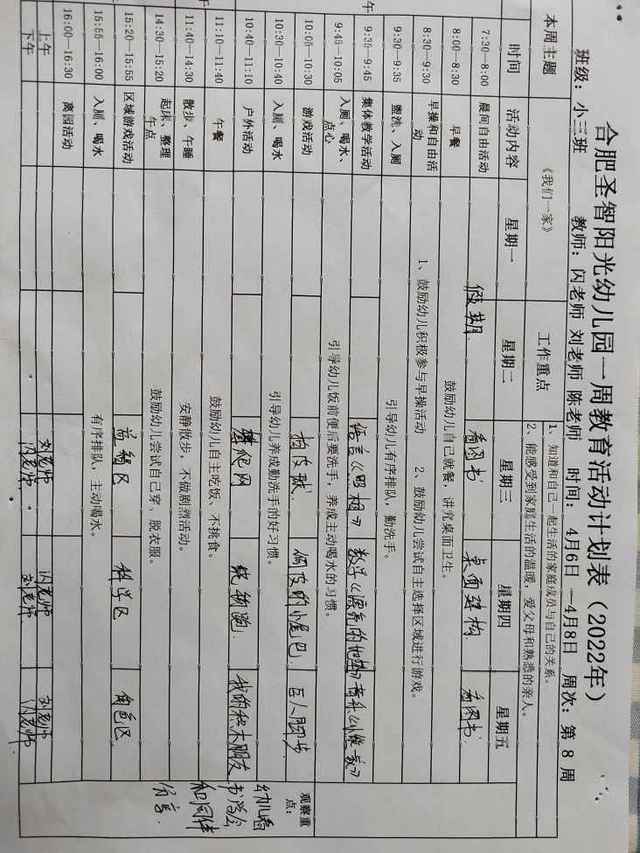 合肥圣智阳光幼儿园一周教育活动计划表（2022年）
班级：小三班 教师：闪老师 刘老师 陈老师 时间：4月6日—4月8日 周次：第 8 周
本周主题 《我们一家》 工作重点 1、知道和自己一起生活的家庭成员与自己的关系。
2、能感受到家庭生活的温暖，爱父母和熟悉的亲人。
时间 活动内容 星期一 星期二 星期三 星期四 星期五
7:30—8:00 晨间自由活动 假期 看图书 桌面建构 看图书
8:00—8:30 早餐 鼓励幼儿自己就餐，讲究桌面卫生。
8:30—9:30 早操和自由活动 1、鼓励幼儿积极参与早操活动 2、鼓励幼儿尝试自主选择区域进行游戏。
9:30—9:35 盥洗、入厕 引导幼儿有序排队，勤洗手。
9:35—9:45 集体教学活动 语言《照相》 数学
9:45—10:05 入厕、喝水、点心 引导幼儿饭前便后要洗手，养成主动喝水的习惯。
10:00—10:30 游戏活动 拍皮球 倒皮的小尾巴 巨人脚步
10:30—10:40 入厕、喝水 引导幼儿养成勤洗手的好习惯。
10:40—11:10 户外活动 攀爬网 我的积木朋友
11:10—11:40 午餐 鼓励幼儿自主吃饭、不挑食。
11:40—14:30 散步、午睡 安静散步，不做剧烈活动。
14:30—15:20 起床、整理午点 鼓励幼儿尝试自己穿、脱衣服。
15:20—15:55 区域游戏活动 益智区 科学区 角色区
15:55—16:00 入厕、喝水 有序排队，主动喝水。
16:00—16:30 离园活动
上午 刘老师 闪老师 刘老师
下午 闪老师 刘老师 闪老师
观察重点：
幼儿看
书学会
和同伴
分享